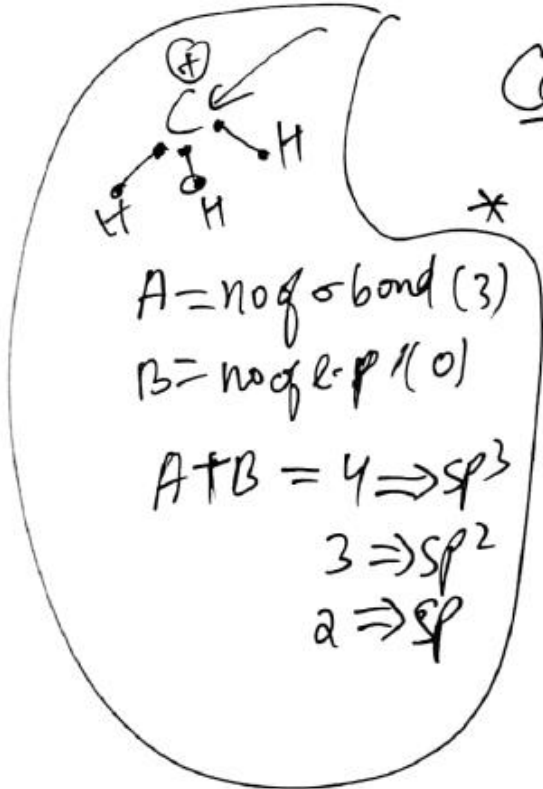 ⊕
C
H H H
*
A = no of σ bond (3)
B = no of l.p (0)
A+B = 4 ⇒ sp³
3 ⇒ sp²
2 ⇒ sp